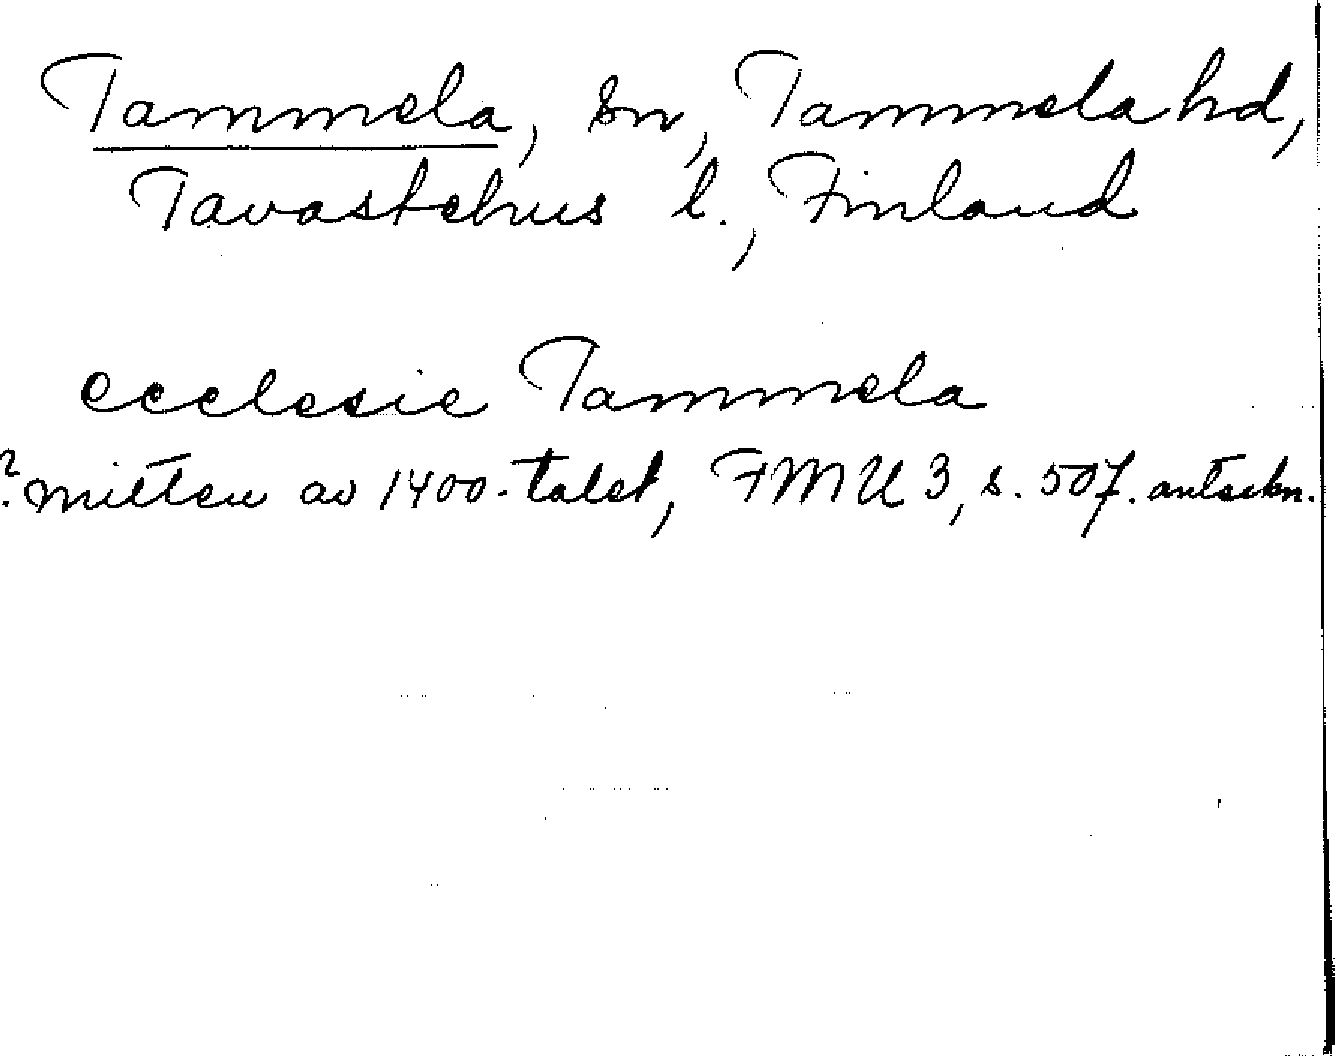 Tammela, sn, Tammela hd,
Tavastehus l., Finland
ecclesie Tammela
?. mitten av 1400-talet, FMU 3, s. 507. anteckn.